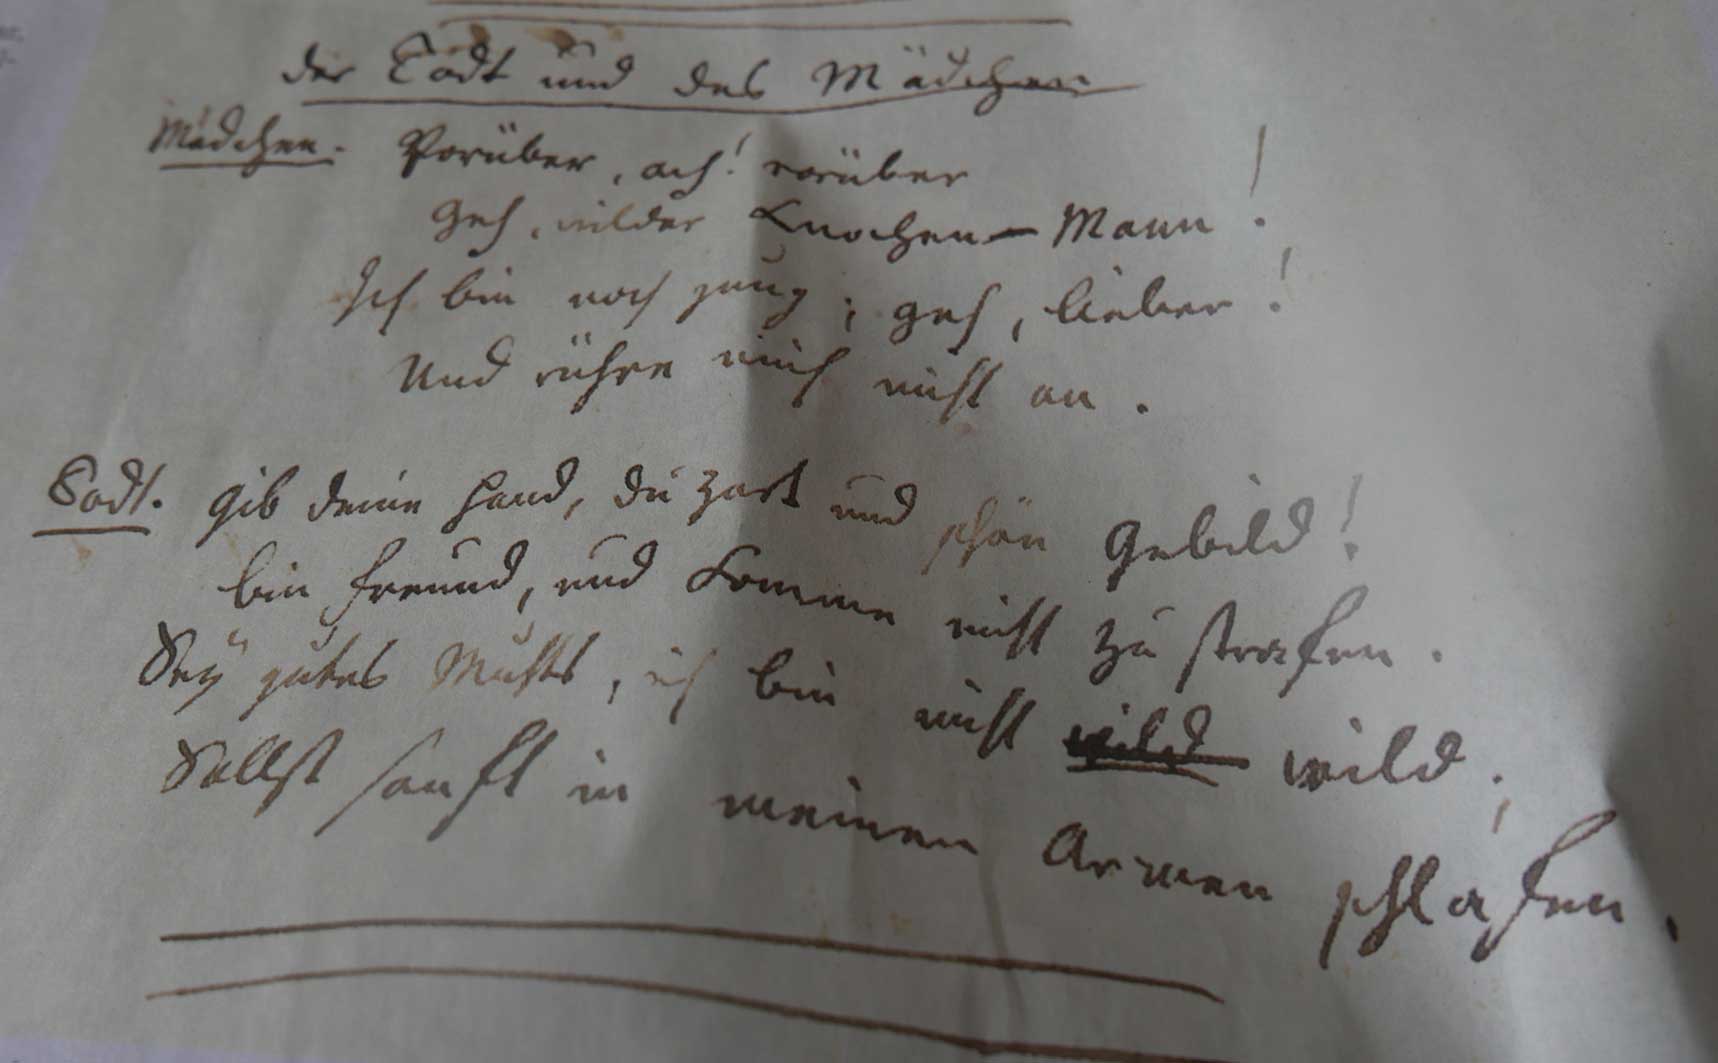 der Todt und das Mädchen
Mädchen. Vorüber, ach! vorüber
Geh, wilder Knochen-Mann!
Ich bin noch jung; geh, lieber!
Und rühre mich nicht an.
Todt. Gib deine Hand, du zart und schön Gebild!
bin Freund, und komme nicht zu strafen.
Sey gutes Muths, ich bin nicht wild wild;
Sollst sanft in meinen Armen schlafen.